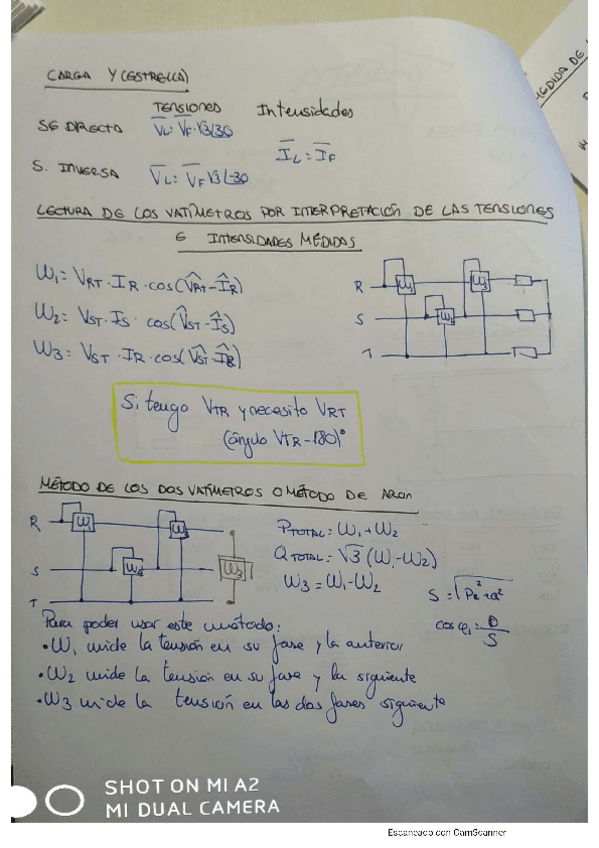 CARGA Y (ESTRELLA)
TENSIONES Intensidades
SE DIRECTO VL = VF·√3/30
IL = IF
S. INVERSA VL = VF √3/-30
LECTURA DE LOS VATÍMETROS POR INTERPRETACIÓN DE LAS TENSIONES
E INTENSIDADES MEDIDAS
W1 = VRT · IR · cos(VRT - IR)
W2 = VST · IS · cos(VST - IS)
W3 = VST · IR · cos(VST - IR)
R W1 W3
S W2
T
Si tengo VTR y necesito VRT
(ángulo VTR - 180)°
MÉTODO DE LOS DOS VATÍMETROS O MÉTODO DE ARON
R W1 W3
S W2 W3
T
PTOTAL = W1 + W2
QTOTAL = √3 (W1 - W2)
W3 = W1 - W2
S = √P²+Q²
cos φ1 = P/S
Para poder usar este método:
• W1 mide la tensión en su fase y la anterior
• W2 mide la tensión en su fase y la siguiente
• W3 mide la tensión en las dos fases siguiente
MEDIDA DE
SHOT ON MI A2
MI DUAL CAMERA
Escaneado con CamScanner